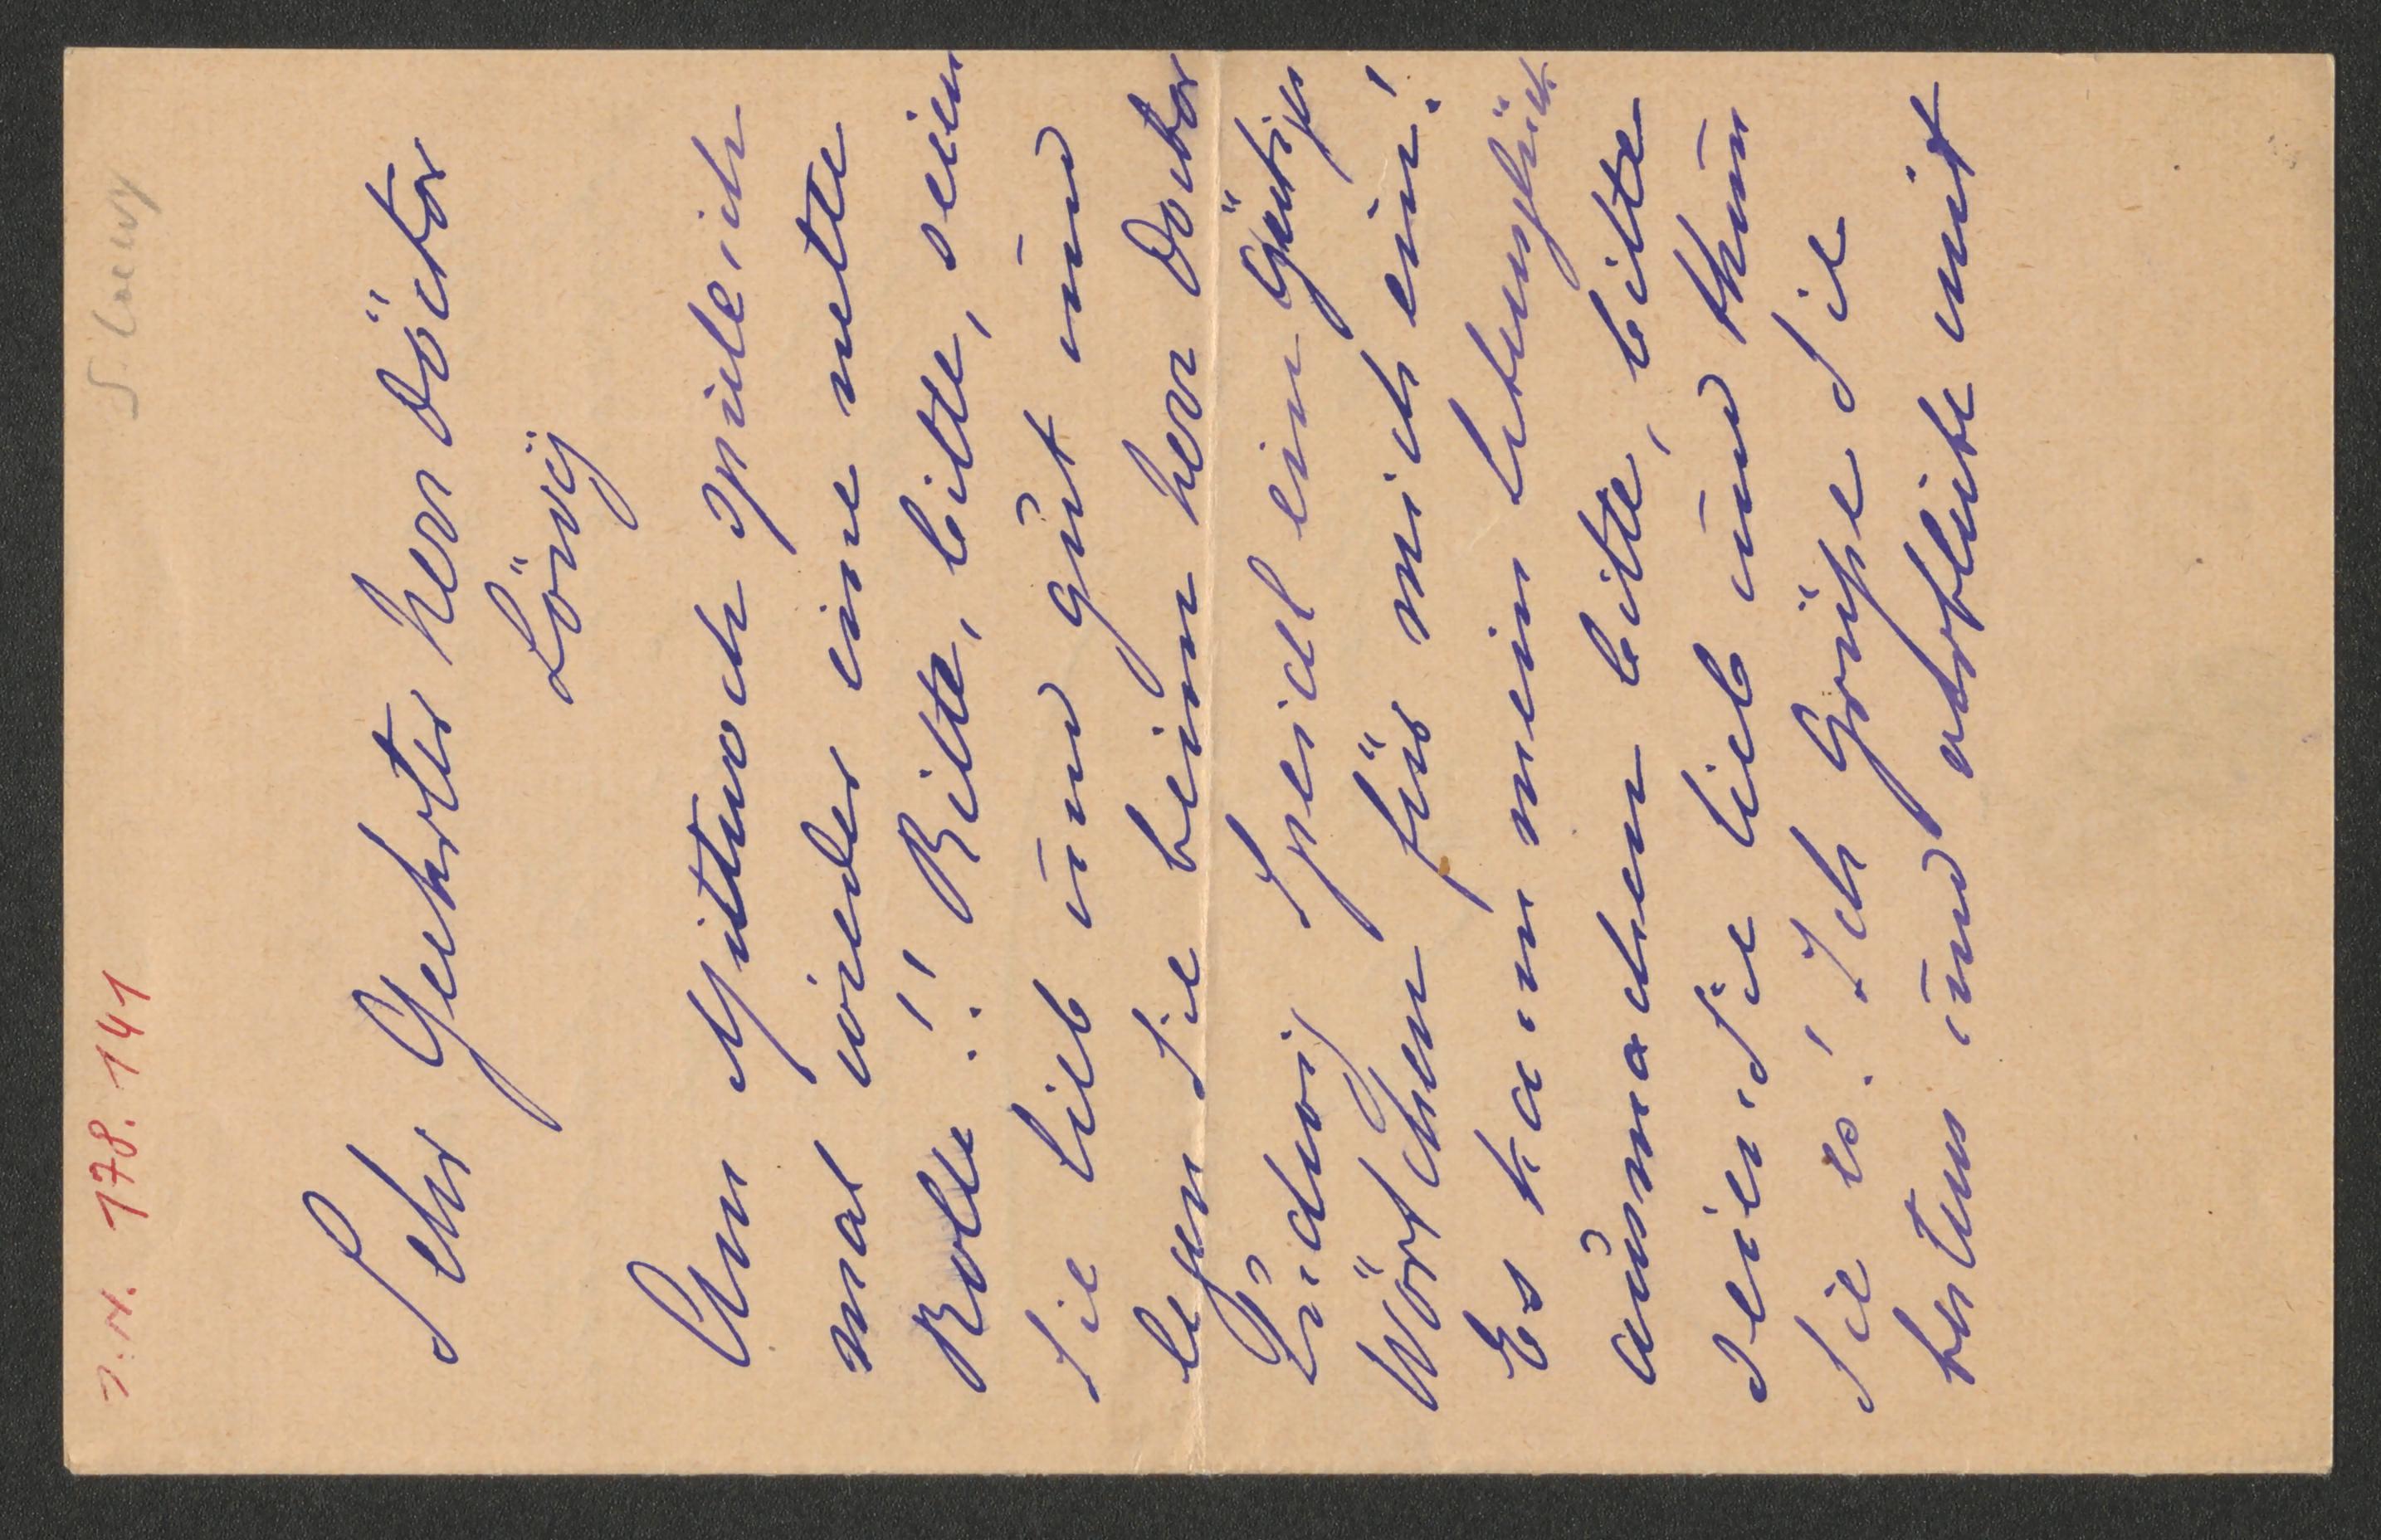 I. N. 178.141
S. Loewy
Sehr Geehrter Herr Doctor
Löwy
Am Mittwoch spiele ich
mal wieder eine nette
Rolle!! Bitte, bitte, seien
Sie lieb und gut und
legen Sie beim Herr Doctor
Ludwig Speidel ein Gütiges
Wörtchen für mich ein!
Es kann mein Lebensglück
ausmachen bitte, bitte
seien Sie lieb und thun
Sie es! Ich Grüße Sie
bestens und verbleibe mit